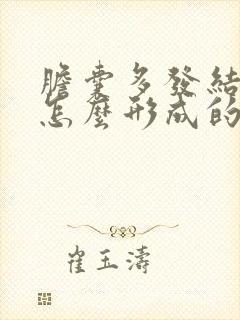 膽囊多發結
怎麼形成的
崔玉濤